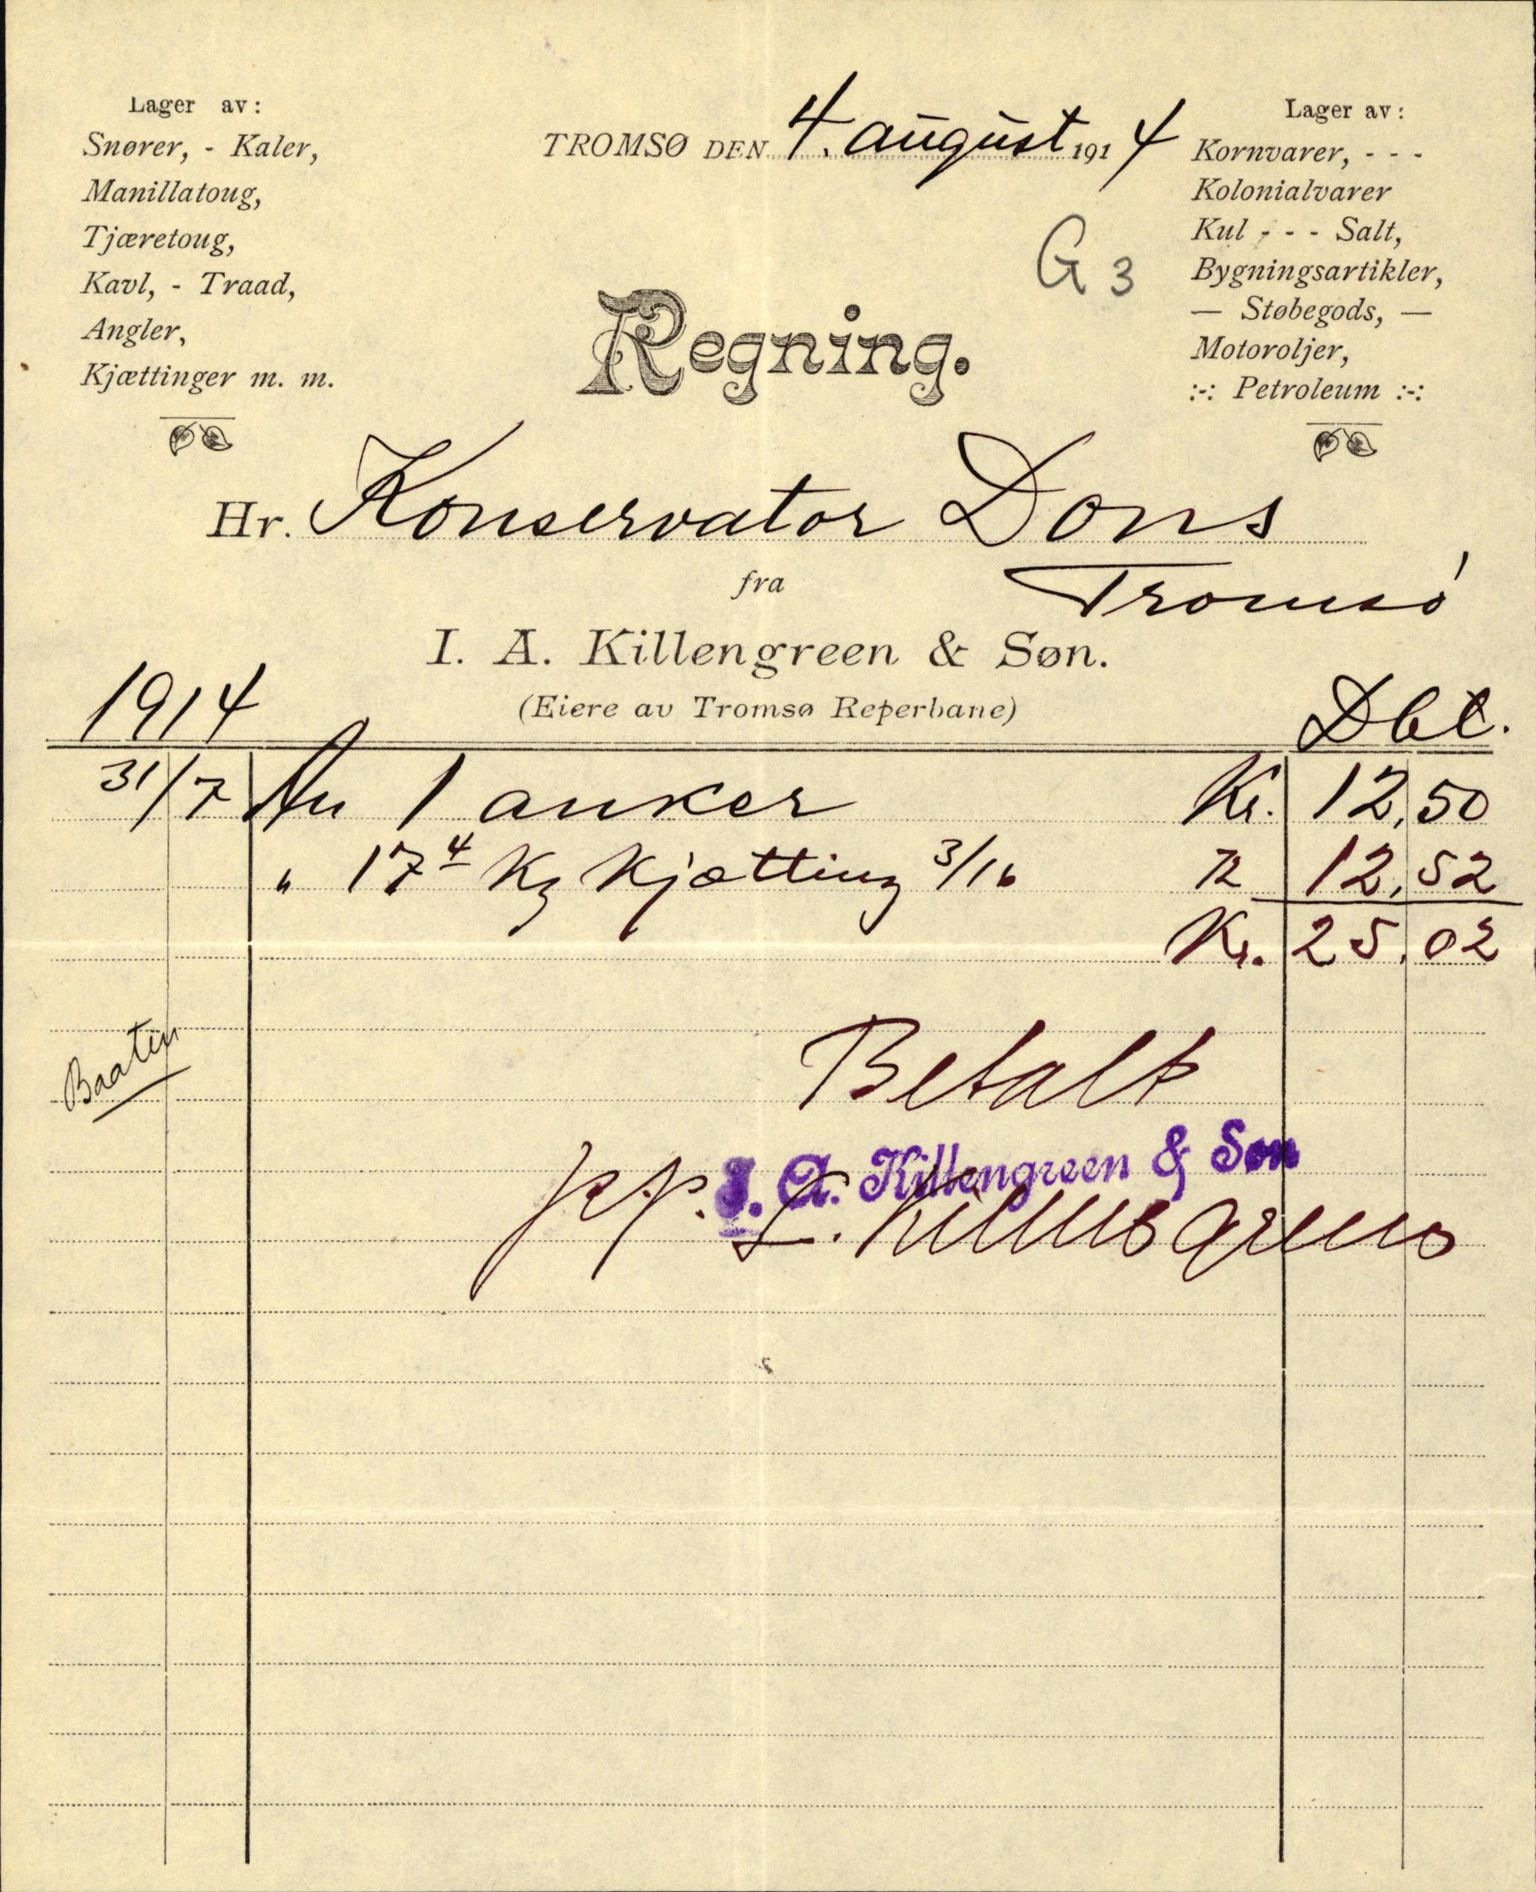 Lager av:
Snører, - Kaler,
Manillatoug,
Tjæretoug,
Kavl, - Traad,
Angler,
Kjættinger m. m.
TROMSØ DEN 4. august 1914
Lager av:
Kornvarer, - - -
Kolonialvarer
Kul - - - Salt,
Bygningsartikler,
— Støbegods, —
Motoroljer,
:-: Petroleum :-:
G 3
Regning.
Hr. Konservator Dons
fra
Tromsø
I. A. Killengreen & Søn.
(Eiere av Tromsø Reperbane)
1914 Dbt.
31/7 An 1 anker Kr. 12,50
" 17 4 Kg Kjætting 3/16 72 12,52
Kr. 25,02
Baaten
Betalt
pp. I. A. Killengreen & Søn
L. Killengreen